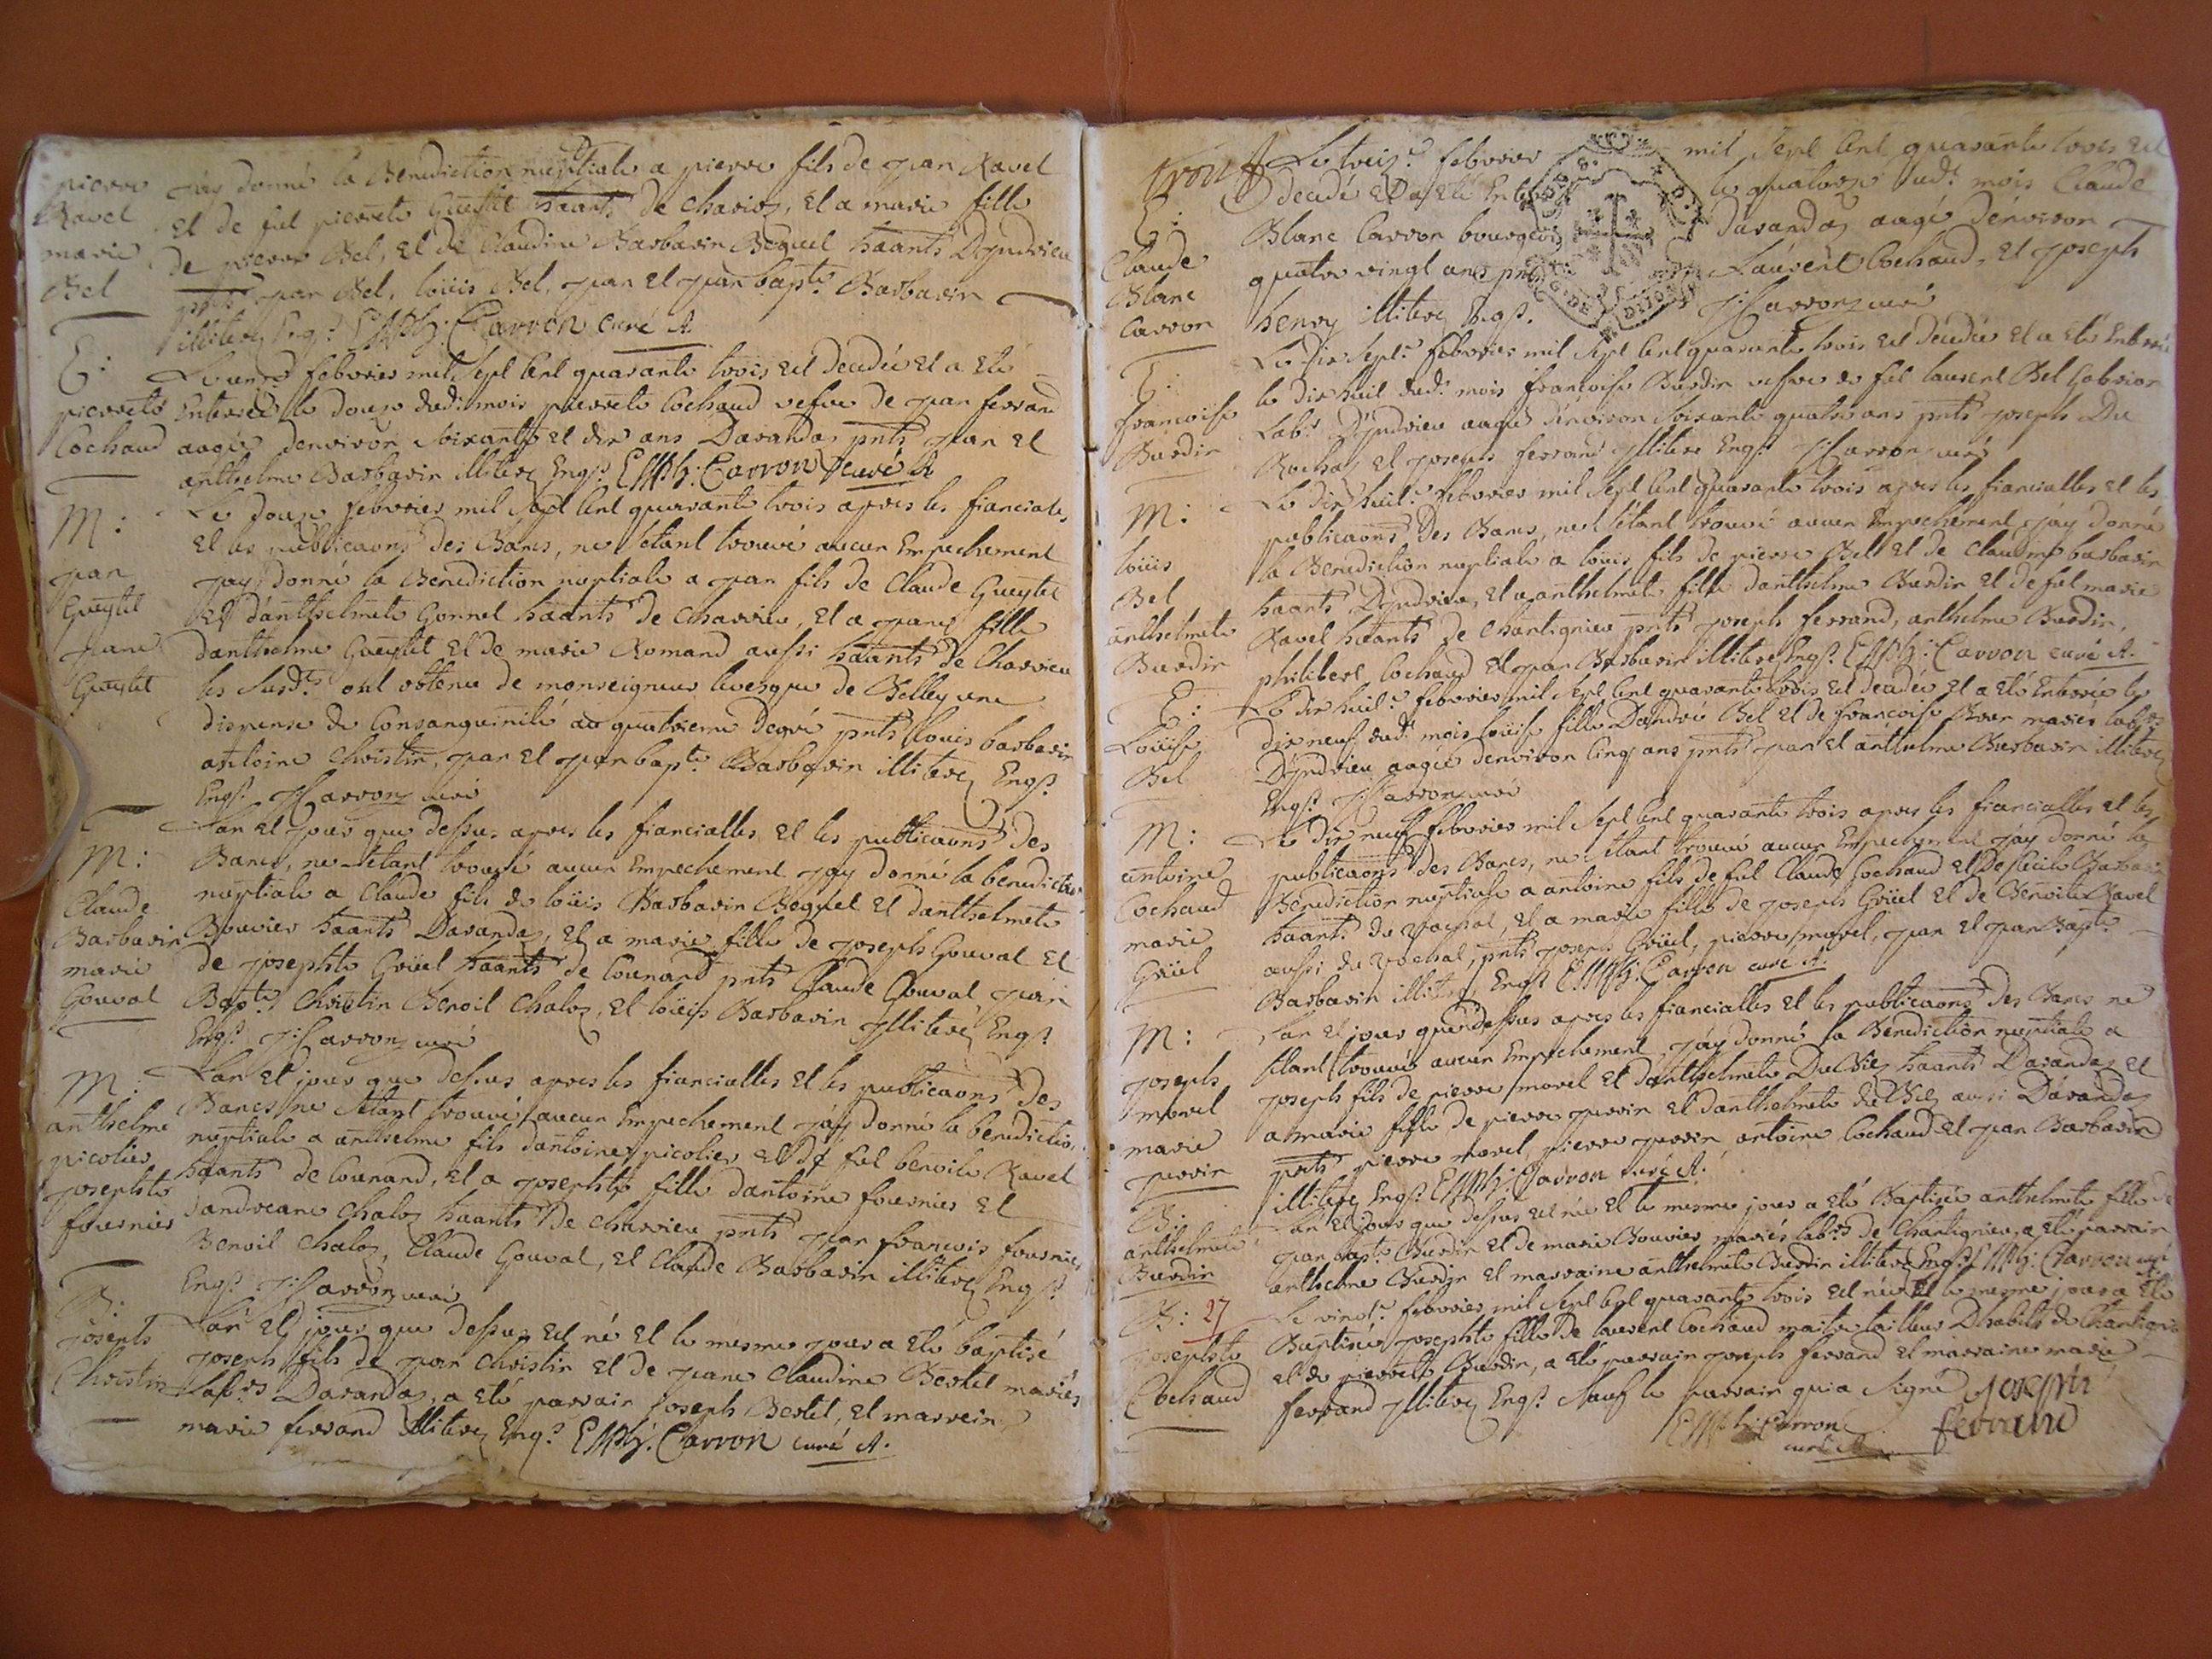 pierre
Ravel
marie
Bel
jäy donné la Benediction nuptiale a pierre fils de jean Ravel
et de fut pierrete Gueytet häants de Charvieu, et a marie fille
de pierre Bel, et de Claudine Barbarin Bequel häants Dyndrieu
pnts jean Bel, loüis Bel, jean et jean bapte Barbarin
illiterez Enqs. EMPhz: Carron curé A.
E:
pierrete
Cochaud
Le unze febvrier mil sept Cent quarante trois est decedée et a eté
Enterrée le douze dud: mois pierrete Cochaud vefve de jean ferrand
aagée denviron soixante et dix ans Davanda pnts jean et
anthelme Barbarin illiterez Enqs. EMPhz: Carron curé A
M:
jean
Gueytet
jeane
Gueytet
Le douze febvrier mil sept Cent quarante trois apres les fiancialles,
et les publicaons des Bancs, ne s'etant trouvé aucun Empechement
jay donné la Benediction nuptiale a jean fils de Claude Gueytet
et d'anthelmete Gonnet häants de Charvieu, et a jeane fille
danthelme Gueytet et de marie Romand aussi häants de Charvieu
les susdts ont obtenu de monseigneur levesque de Belley une
dispense de Consanguinité au quatrieme degré pnts loüis barbarin
antoine Christin, jean et jean bapte Barbarin illiterez Enqs.
Enqs. J:Carron curé
M:
Claude
Barbarin
marie
Gouval
L'an et jour que dessus apres les fiancialles et les publicaons des
Bancs, ne s'etant trouvé aucun Empechement jay donné la benediction
nuptiale a Claude fils de loüis Barbarin Bequel et danthelmete
Bouvier häants Davanda, et a marie fille de joseph Gouval et
de josephte Grüel häants de Counand pnts Claude Gouval jean
Bapte Christin Benoit Chaloz, et loüis Barbarin jlliterez Enqs
Enqs. J:Carron curé
M:
anthelme
picolier
josephte
fournier
L'an et jour que dessus apres les fiancialles et les publicaons des
Bancs, ne s'etant trouvé aucun Empechement jäy donné la benediction
nuptiale a anthelme fils dantoine picolier et de fut benoite Ravel
häants de Counand, et a josephte fille dantoine fournier et
dandreane Chaloz häants de Charvieu pnts jean francois fournier
Benoit Chaloz, Claude Gouval, et Claude Barbarin illiterez Enqs.
Enqs. J:Carron curé
B:
joseph
Christin
L'an et jour que dessus est né et le mesme jour a eté baptisé
joseph fils de jean Christin et de jeane Claudine Bertet mariés
labrs Davandaz, a eté parrain joseph Bertet, et marreine
marie ferrand illiterez Enqs. EMPhz: Carron curé A.
E:
Claude
Blanc
Carron
Le treize. febvrier mil sept Cent quarante trois est
decedé et a eté Enterré le quatorze dud: mois Claude
Blanc Carron bourgeois Davandaz aagé denviron
quatre vingt ans pnts Laurent Cochaud, et joseph
henry illiterez Enqs. J:Carron curé
E:
francoise
Burdin
Le dix sept.e febvrier mil sept Cent quarante trois est decedée et a eté Enterrée
le dix huit dud: mois francoise Burdin vefve de fut laurent Bel Gabrion
Labr. Dyndrieu aagée denviron soixante quatre ans pnts joseph Du
Rochaz et joseph ferrand jlliterez Enqs. J:Carron curé
M:
loüis
Bel
anthelmete
Burdin
Le dix huit.e febvrier mil sept Cent quarante trois apres les fiancialles et les
publicaons des Bancs, ne s'etant trouvé aucun Empechement jäy donné
la Benediction nuptiale a loüis fils de pierre Bel et de Claudine barbarin
häants Dyndrieu, et a anthelmete fille danthelme Burdin et de fut marie
Ravel häants de Chantignieu pnts joseph ferrand, anthelme Burdin,
philibert Cochaud et jean Barbarin illiterez Enqs. EMPhz: Carron curé A.
E:
Loüise
Bel
Le dix huit.e febvrier mil sept Cent quarante trois est decedée et a eté Enterrée le
dix neuf dud: mois loüise fille Dandré Bel et de francoise mariés labrs
Dyndrieu aagée denviron Cinq ans pnts jean et anthelme Barbarin illiterez
Enqs. J:Carron curé
M:
antoine
Cochaud
marie
Grüel
Le dix neuf febvrier mil sept Cent quarante trois apres les fiancialles et les
publicaons des Bancs, ne s'etant trouvé aucun Empechement jäy donné la
Benediction nuptiale a antoine fils de fut Claude Cochaud et de
häants du rochal, et a marie fille de joseph Grüel et de Benoite Ravel
aussi du rochal, pnts joseph Grüel, pierre morel, jean et jean Bapte
Barbarin illiterez Enqs. EMPhz: Carron curé A.
M:
joseph
morel
marie
L'an et jour que dessus apres les fiancialles et les publicaons des Bancs ne
s'etant trouvé aucun Empechement, jäy donné la Benediction nuptiale a
joseph fils de pierre morel et danthelmete häants Davandaz et
a marie fille de pierre et danthelmete aussi Davandaz
pnts pierre morel, pierre antoine Cochaud et jean Barbarin
illiterez Enqs. EMPhz: Carron curé A.
B:
anthelmete
Burdin
L'an et jour que dessus est née et le mesme jour a eté Baptisée anthelmete fille de
jean bapte Burdin et de marie Bouvier mariés labrs de Chantignieu, a eté parrain
anthelme Burdin et marraine anthelmete Burdin illiterez Enqs. EMPhz: Carron curé
B: 27
josephte
Cochaud
Le vingt.e febvrier mil sept Cent quarante trois est née et le mesme jour a eté
Baptisée josephte fille de laurent Cochaud maitre tailleur Dhabits de Chantignieu
et de pierrete Burdin, a eté parrain joseph ferrand et marraine marie
ferrand jlliterez Enqs. sauf le parrain qui a signé joseph
EMPhz: Carron ferrand
curé A